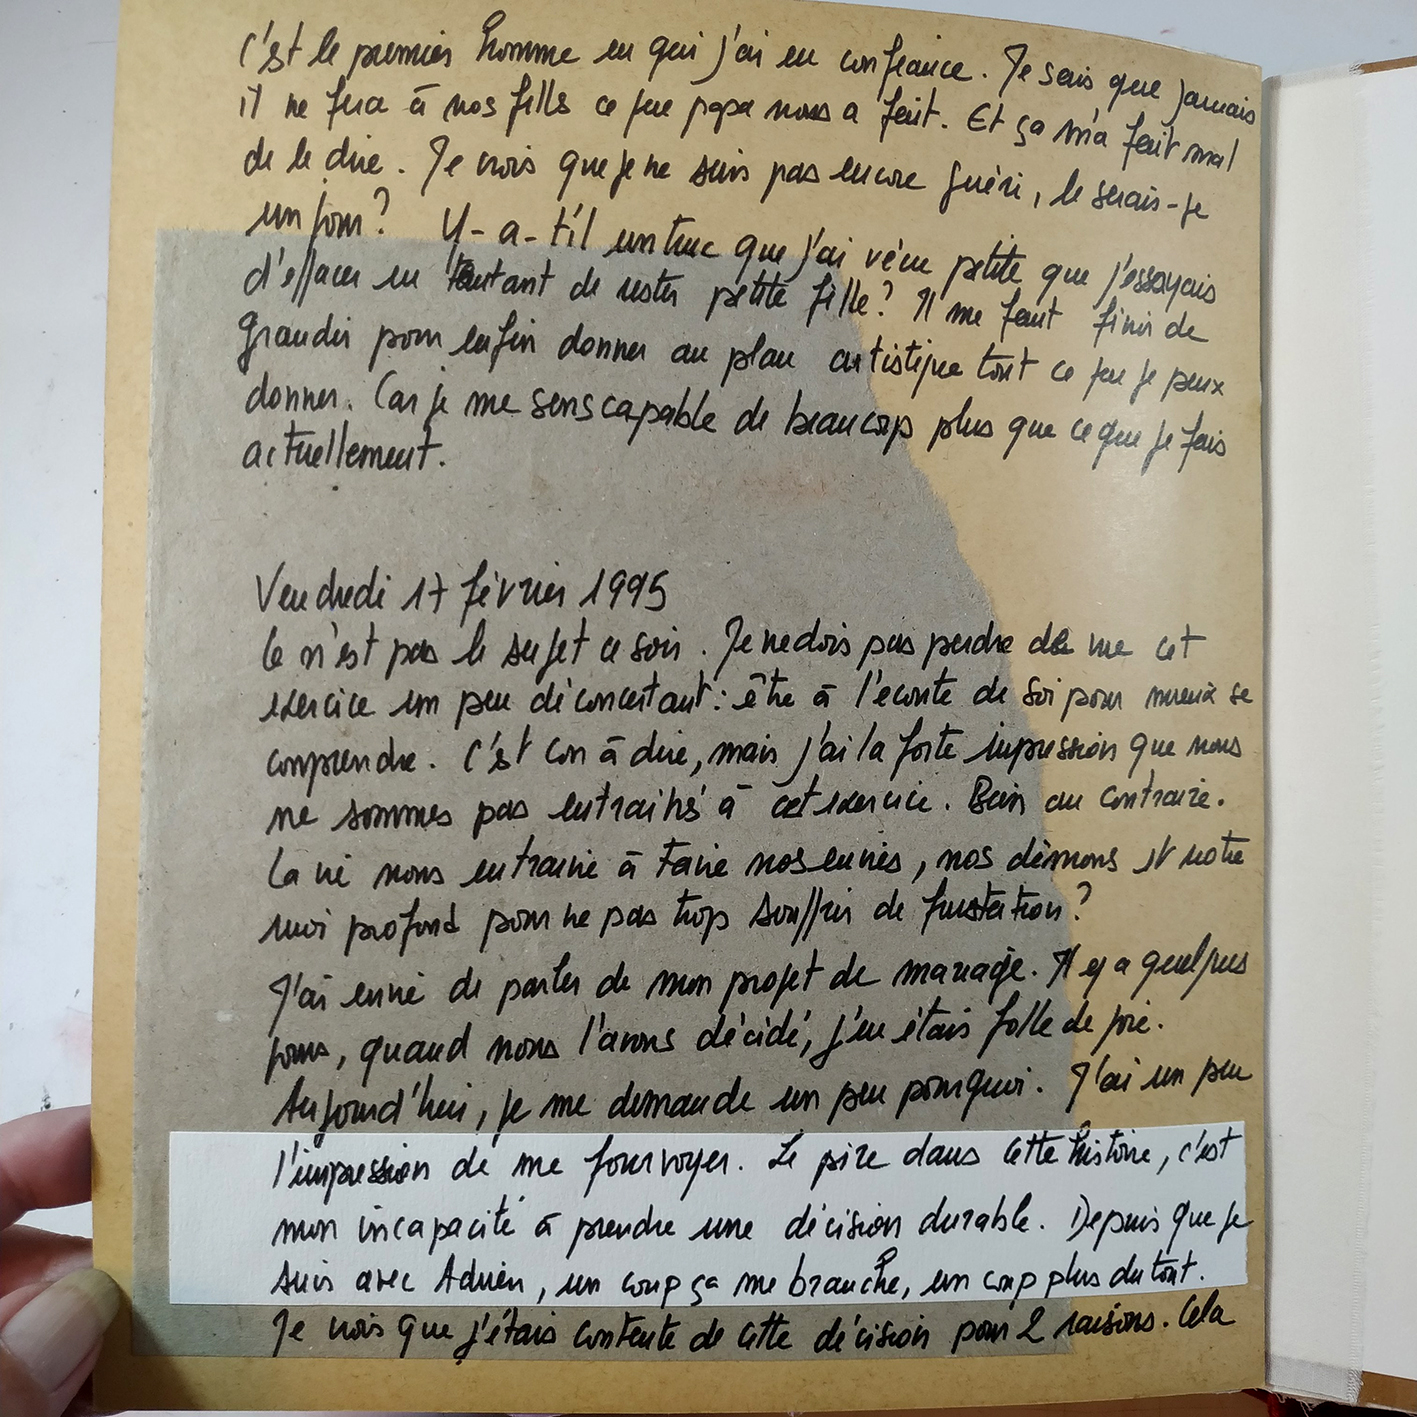 C'est le premier homme en qui j'ai eu confiance. Je sais que jamais
il ne fera à nos filles ce que papa nous a fait. Et ça m'a fait mal
de le dire. Je crois que je ne suis pas encore guéri, le serais-je
un jour ? Y-a-t'il un truc que j'ai vécu petite que j'essayais
d'effacer en tentant de rester petite fille ? Il me faut finir de
grandir pour enfin donner au plan artistique tout ce que je peux
donner. Car je me sens capable de beaucoup plus que ce que je fais
actuellement.
Vendredi 17 février 1995
Ce n'est pas le sujet ce soir. Je ne dois pas perdre de vue cet
exercice un peu déconcertant : être à l'écoute de soi pour mieux se
comprendre. C'est con à dire, mais j'ai la forte impression que nous
ne sommes pas entraînés à cet exercice. Bien au contraire.
La vie nous entraine à taire nos envies, nos démons et notre
moi profond pour ne pas trop souffrir de frustation ?
J'ai envie de parler de mon projet de mariage. Il y a quelques
jours, quand nous l'avons décidé, j'en étais folle de joie.
Aujourd'hui, je me demande un peu pourquoi. J'ai un peu
l'impression de me fourvoyer. Le pire dans cette histoire, c'est
mon incapacité à prendre une décision durable. Depuis que je
suis avec Adrien, un coup ça me branche, un coup plus du tout.
Je crois que j'étais contente de cette décision pour 2 raisons. Cela